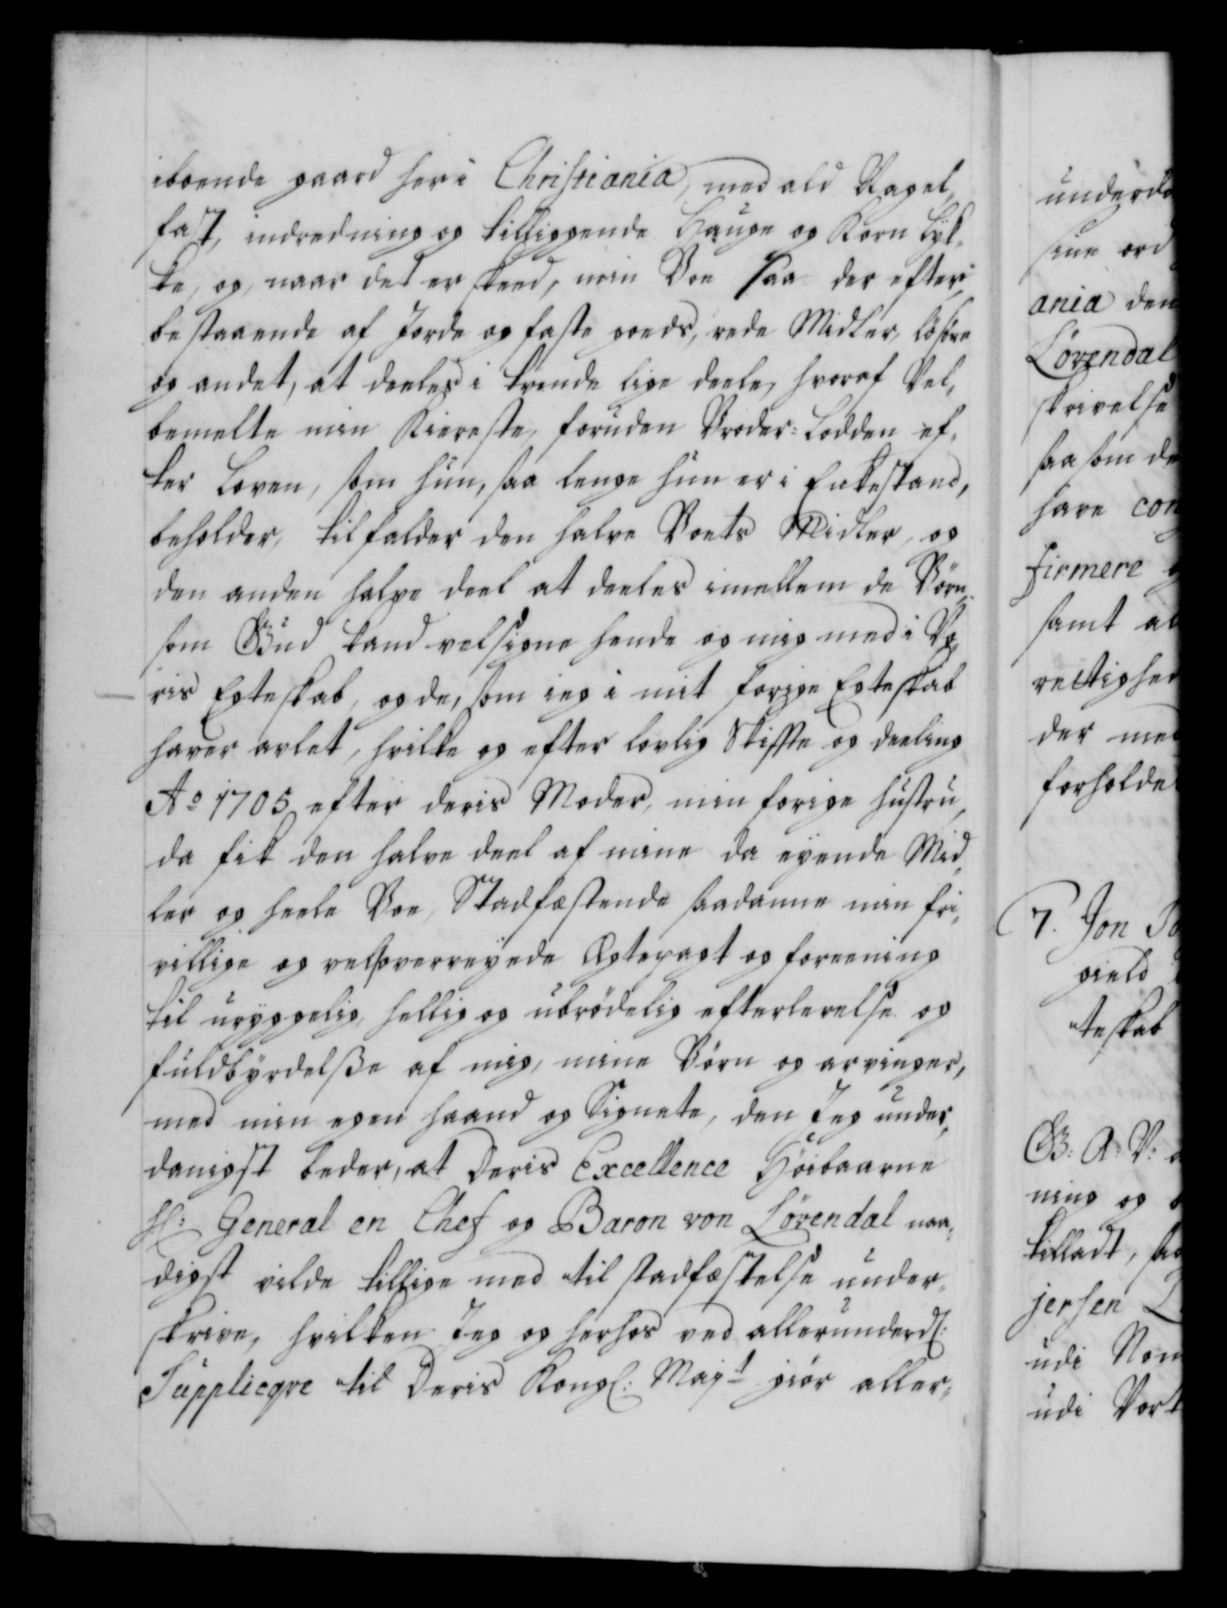 iboende gaard her i Christiania, med ald Nagel,
fast, indredning og tilliggende Hauge og Korn Lyk,
ke, og, naar det er skeed, min Boe saa der efter
bestaaende af Jorde og faste goeds, rede Midler, løsöre
og andet, at deeles i tvende lige deele, hvoraf Vel,
bemelte min Kiereste, foruden Broder-Lodden ef,
ter Loven, som hun, saa lenge hun er i Enkestand,
beholder, tilfalder den halve Boets Midler, og
den anden halve deel at deeles imellem de Börn
som Gud kand velsigne hende og mig med i Vo,
ris Egteskab, og de, som ieg i mit forige Egteskab
haver avlet, hvilke og efter lovlig Skiffte og deeling
Ao 1705 efter deris Moder, min forige hustru,
da fik den halve deel af mine da eyende Mid,
ler og heele Boe, Stadfæstende saadanne min fri,
villige og veloverveyede Ægtepagt og foreening
til uryggelig, hellig og ubrödelig efterlevelse og
fuldbyrdelsse af mig, mine Börn og arvinger,
med min egen haand og Signete, den Jeg under,
danigst beder, at Deris Excellence Höibaarne
H: General en Chef og Baron von Lövendal naa,
digst vilde tillige med til stadfæstelse under,
skrive, hvilken Jeg og herhos ved allerunderd:
Suppliqve til Deris Kongl: Mayt giör aller,
underd
sine ord
ania den
Lövendal
skrivelse
saa som de
have con
firmere
samt al
rettighed
der med
forholde
7. Jon
gield
teskab
G: A: V:
ning og
tilladt, sa
jersen L
udi Nor
udi Vort